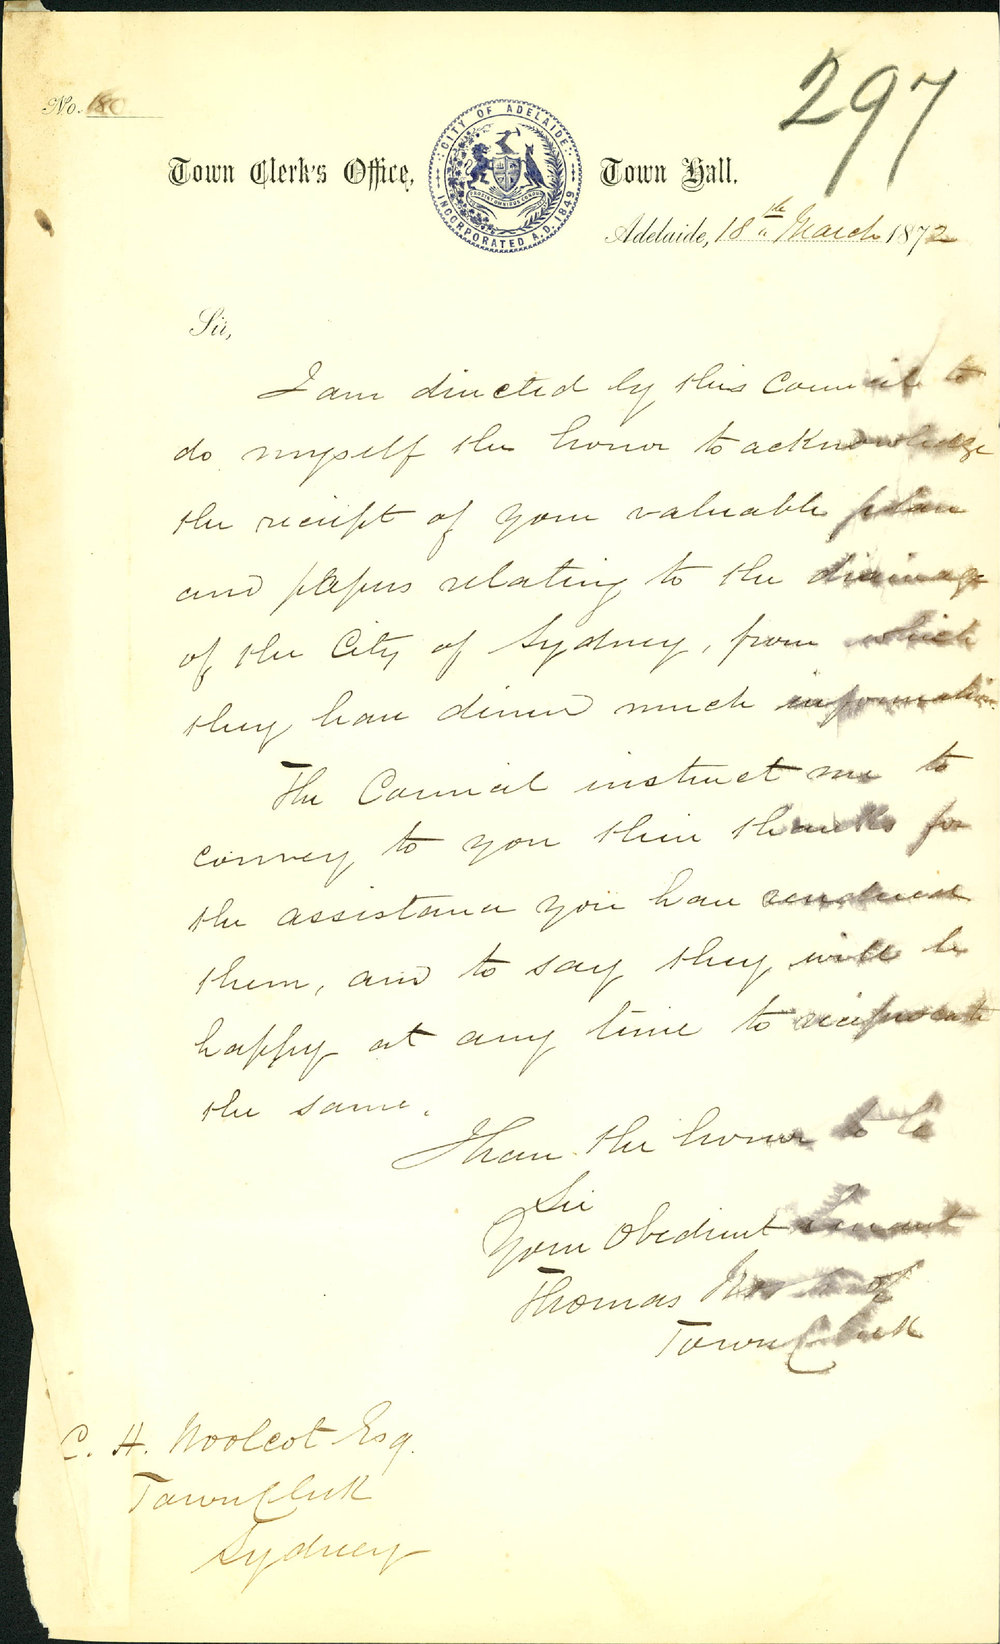 297
No. 180
Town Clerk's Office, Town Hall.
CITY OF ADELAIDE
INCORPORATED A.D. 1849
Adelaide, 18th March 1872
Sir,
I am directed by this Council to
do myself the honor to acknowledge
the receipt of your valuable plan
and papers relating to the drainage
of the City of Sydney, from which
they have derived much information.
The Council instruct me to
convey to you their thanks for
the assistance you have rendered
them, and to say they will be
happy at any time to reciprocate
the same.
I have the honor to be
Sir
Your Obedient Servant
Thomas
Town Clerk
C. H. Woolcot Esq.
Town Clerk
Sydney